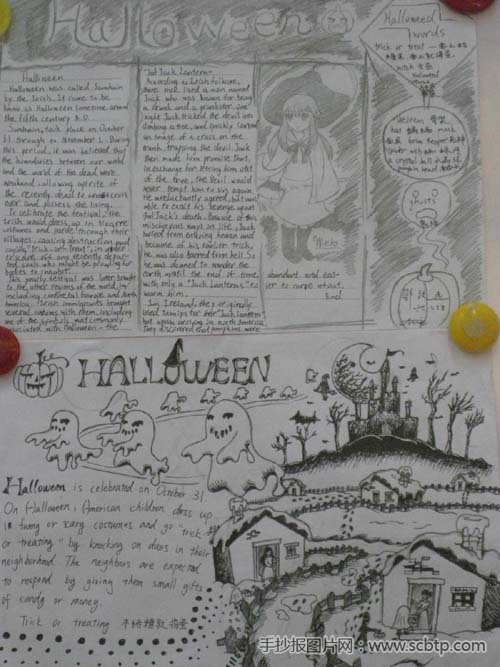 Halloween
Halloween
Halloween was called Samhain
by the Irish. It came to be
know as Halloween sometime around
the fifth century A.D.
Samhain, took place on October
31 through to November 1. During
this period, it was believed that
the boundaries between our world
and the world of the dead were
weakened, allowing spirits of
the recently dead to cross
over and possess the living.
To celebrate the festival, the
Irish would dress up in bizarre
costumes and parade through their
villages, causing destruction and
in order
to scare off any recently depart-
ed souls who might be prowling for
bodies to inhabit.
This yearly festival was later brought
to the other regions of the world, in-
including continental Europe and North
America. Irish immigrants brought
several customs with them, including
one of the symbols most commonly
associated with Halloween - the
Jack Lantern
According to Irish folklore,
there once lived a man named
Jack who was known for being
a drunk and a prankster. One
night Jack tricked the devil into
climbing a tree, and quickly carved
an image of a cross on the
trunk, trapping the devil. Jack
then made him promise that,
in exchange for letting him out
of the tree, the Devil would
never tempt him to sin again.
He reluctantly agreed, but was
able to exact his revenge upon
Jack's death. Because of his
mischievous ways in life, Jack
barred from entering heaven and
because of his earlier trick,
he was also barred from hell. So
he was doomed to wander the
earth until the end of time,
with only a "Jack Lantern" to
warm him.
In Ireland, they originally
used turnips for their "Jack Lantern"
but upon arriving in North America
they discovered that pumpkins were
abundant and eas-
ier to carve out.
End
words
trick or treat
mask
a crystal ball
HALLOWEEN
Halloween is celebrated on October 31.
On Halloween, American children dress up
in funny or scary costumes and go "trick
or treating" by knocking on doors in their
neighborhood. The neighbors are expected
to respond by giving them small gifts
of candy or money.
Trick or treating 不给糖就捣蛋
手抄报图片网：www.scbtp.com